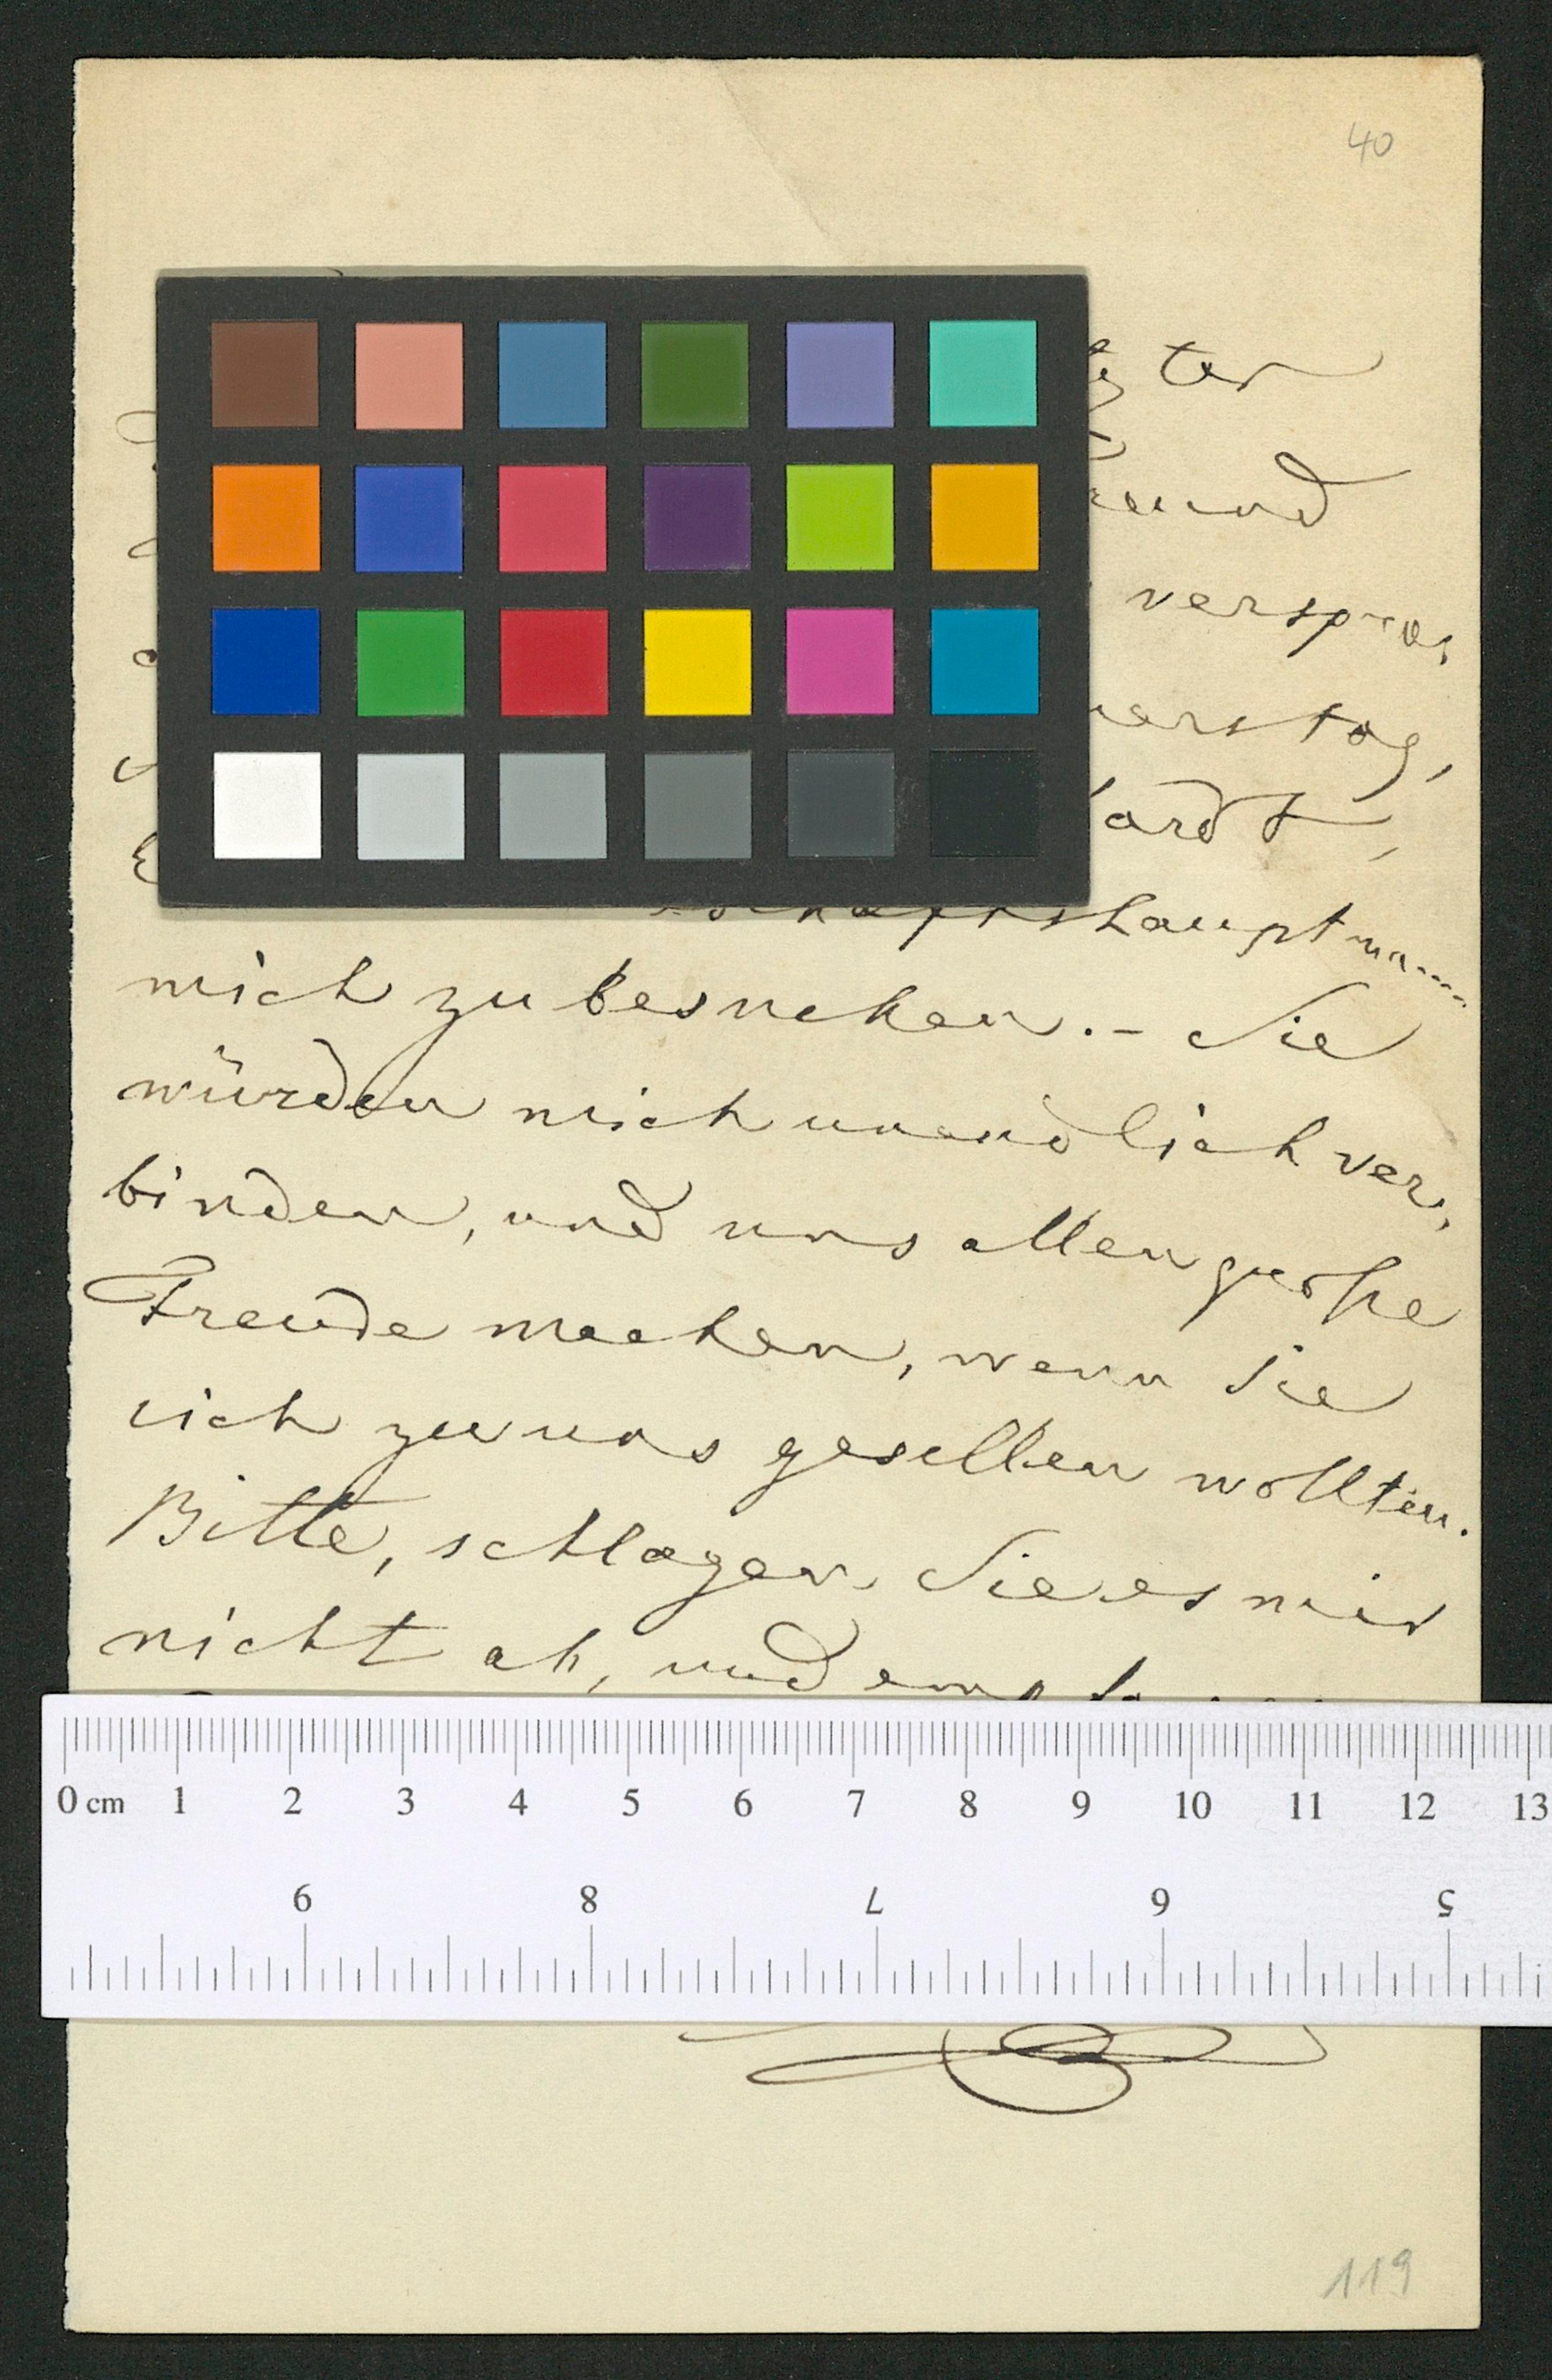 40
ter
verspro,
mich zu besuchen. - Sie
würden mich unendlich ver,
binden, und uns allen große
Freude machen, wenn Sie
sich zu uns gesellen wollten.
Bitte, schlagen Sie es mir
nicht ab, und
0 cm 1 2 3 4 5 6 7 8 9 10 11 12 13
9 8 7 6 5
119